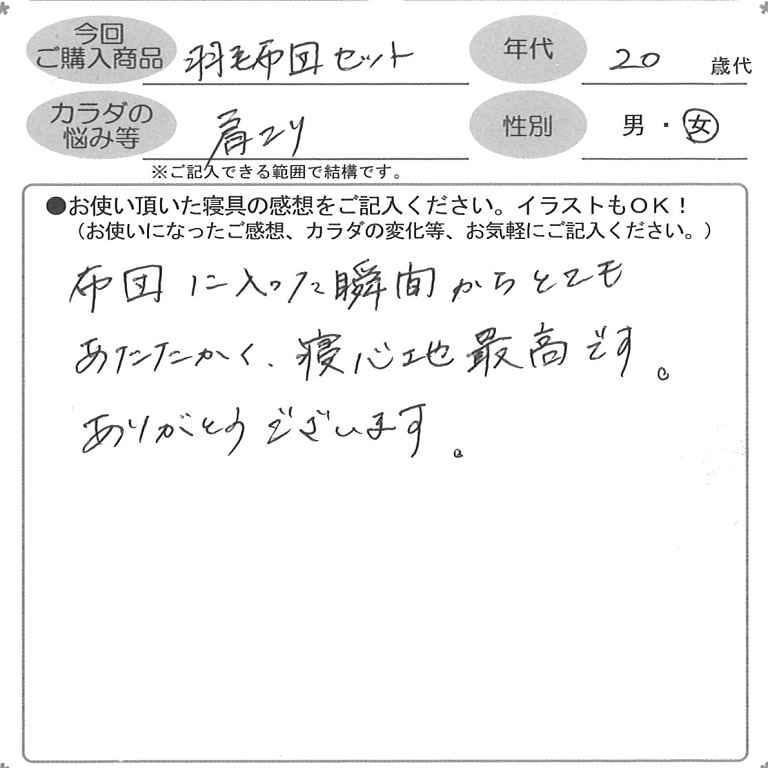 今回
ご購入商品 羽毛布団セット 年代 20 歳代
カラダの
悩み等 肩こり 性別 男・女
※ご記入できる範囲で結構です。
●お使い頂いた寝具の感想をご記入ください。イラストもOK!
(お使いになったご感想、カラダの変化等、お気軽にご記入ください。)
布団に入った瞬間からとても
あたたかく、寝心地最高です。
ありがとうございます。